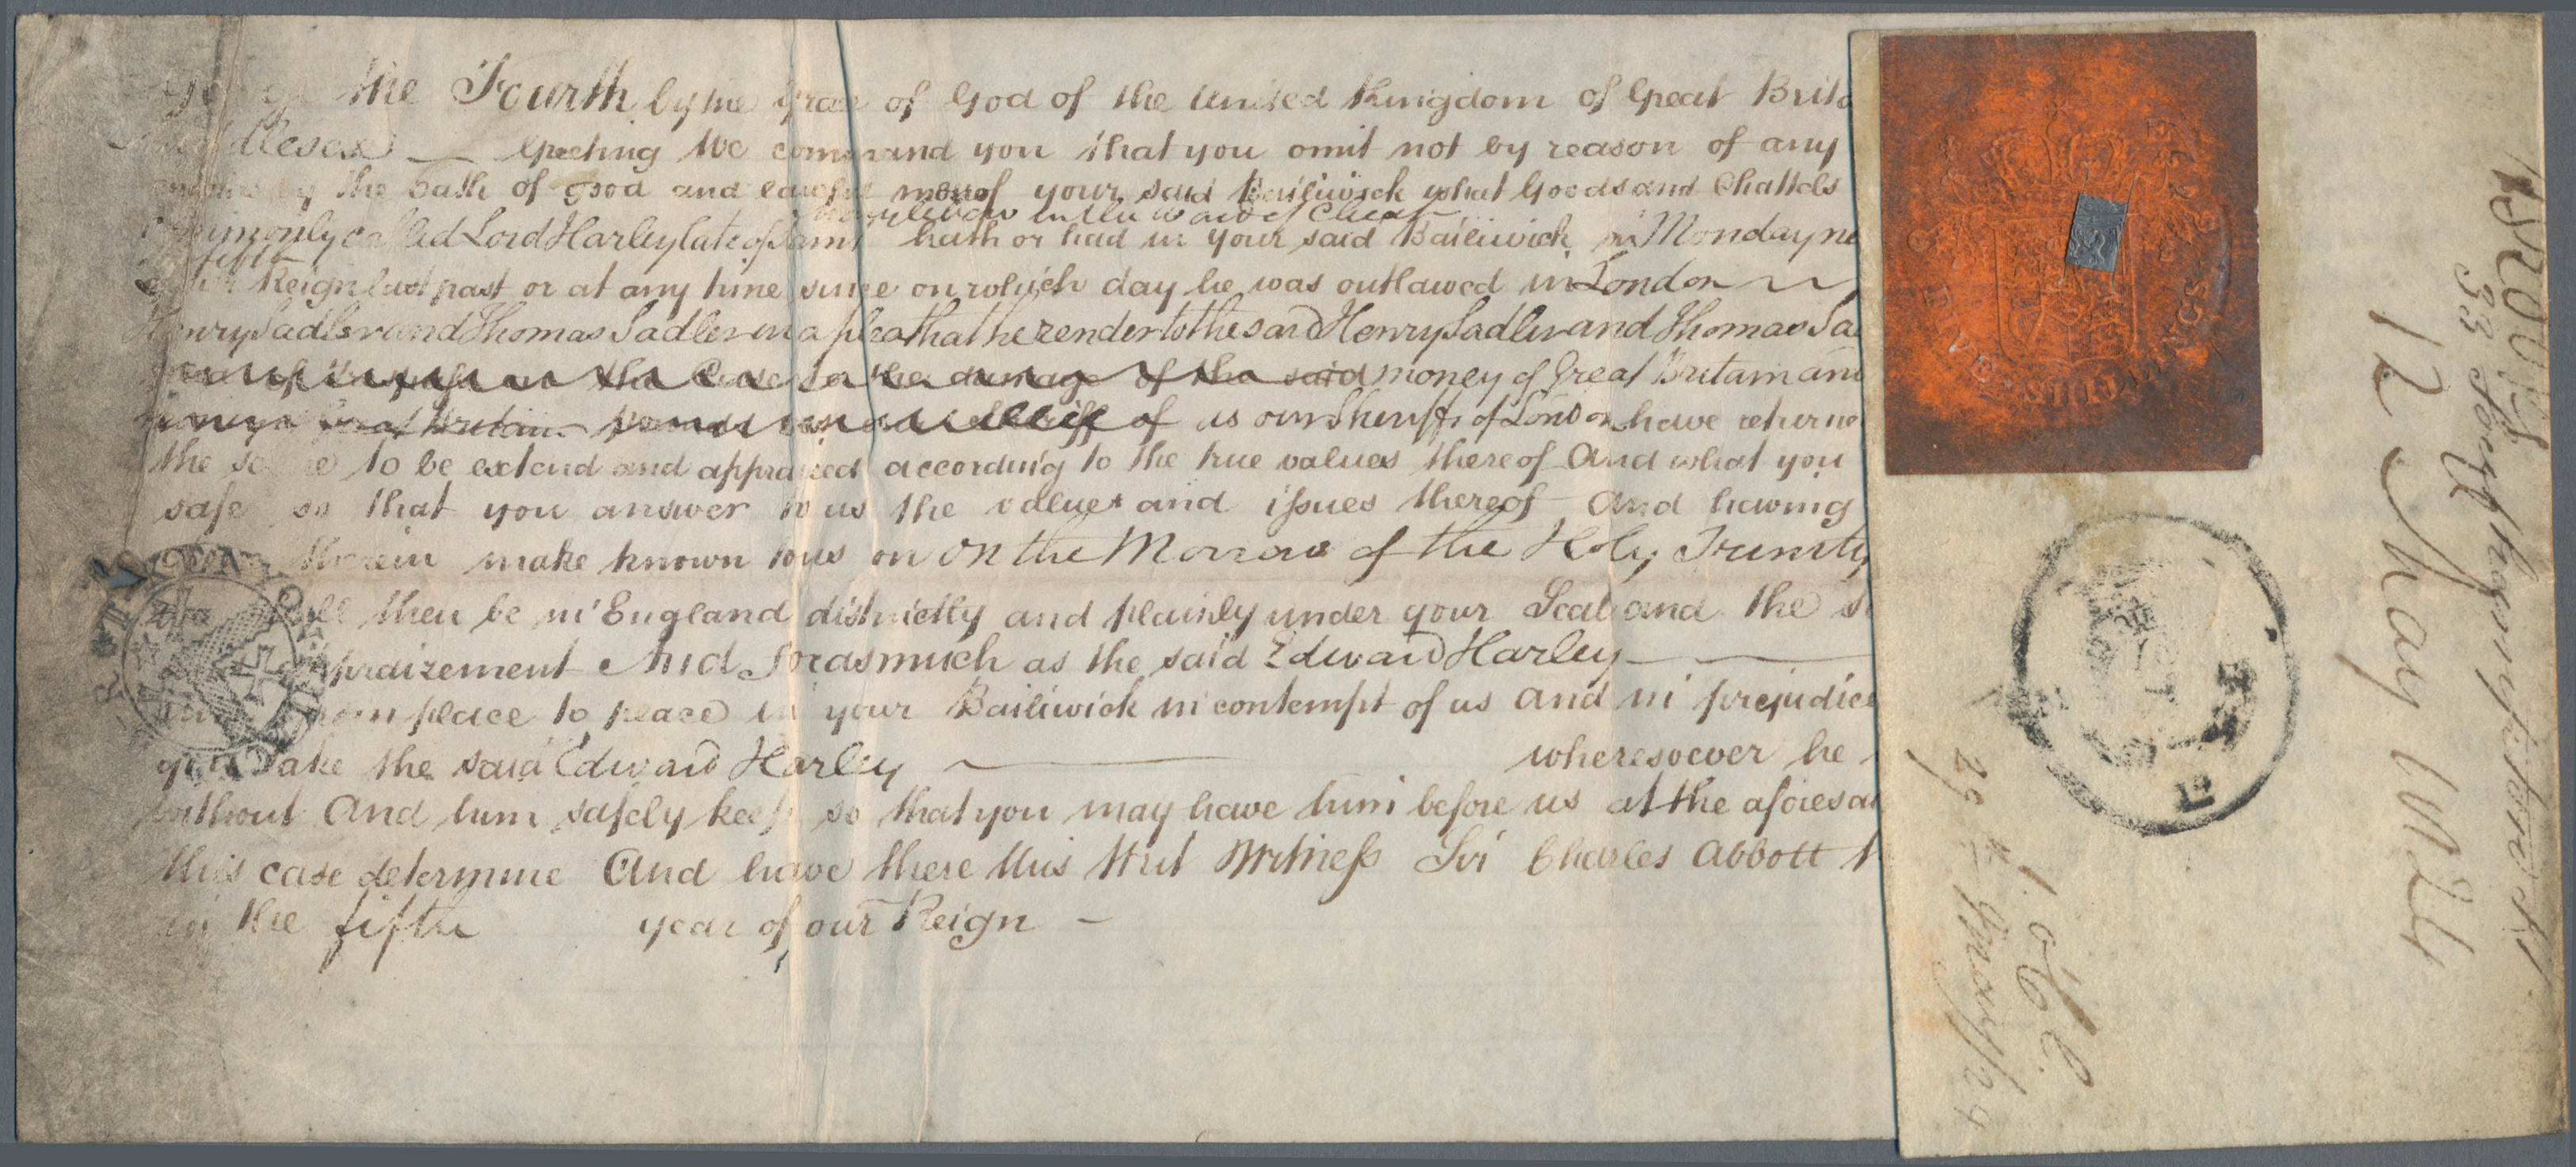 the Fourth by the Grace of God of the United Kingdom of Great Brita
Middlesex Greeting We command you that you omit not by reason of any
by the oath of good and lawful men of your said Bailiwick what Goods and Chattels
Marylebone in the
commonly called Lord Harley late of Saint hath or had in your said Bailiwick on Monday ne
fifth
of our Reign last past or at any time since on which day he was outlawed in London
Henry Sadler and Thomas Sadler in a plea that he render to the said Henry Sadler and Thomas Sa
the damage of the said money of Great Britain and
Great Britain of as our Sheriffs of London have returne
the same to be extend and appraized according to the true values thereof And what you
safe so that you answer to us the values and issues thereof And having
therein make known to us on On the Morrow of the Holy Trinity
shall then be in England distinctly and plainly under your Seal and the s
appraizement And forasmuch as the said Edward Harley
from place to place in your Bailiwick in contempt of us and in prejudice
you take the said Edward Harley wheresoever he
without And him safely keep so that you may have him before us at the aforesai
this case determine And have there this Writ Witness Sir Charles Abbott
in the fifth year of our Reign
SHILLINGS
12 May 1824